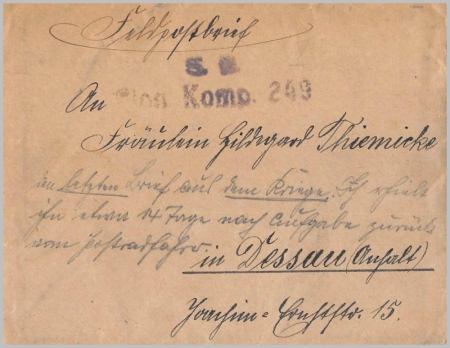 Feldpostbrief
S. B.
Pion. Komp. 249
An
Fräulein Hildegard Thiemicke
den letzten Brief aus dem Kriege. Ich erhielt
ihn etwa 14 Tage nach Aufgabe zurück
vom Postradfahrer.
in Dessau (Anhalt)
Joachim-Ernststr. 15.